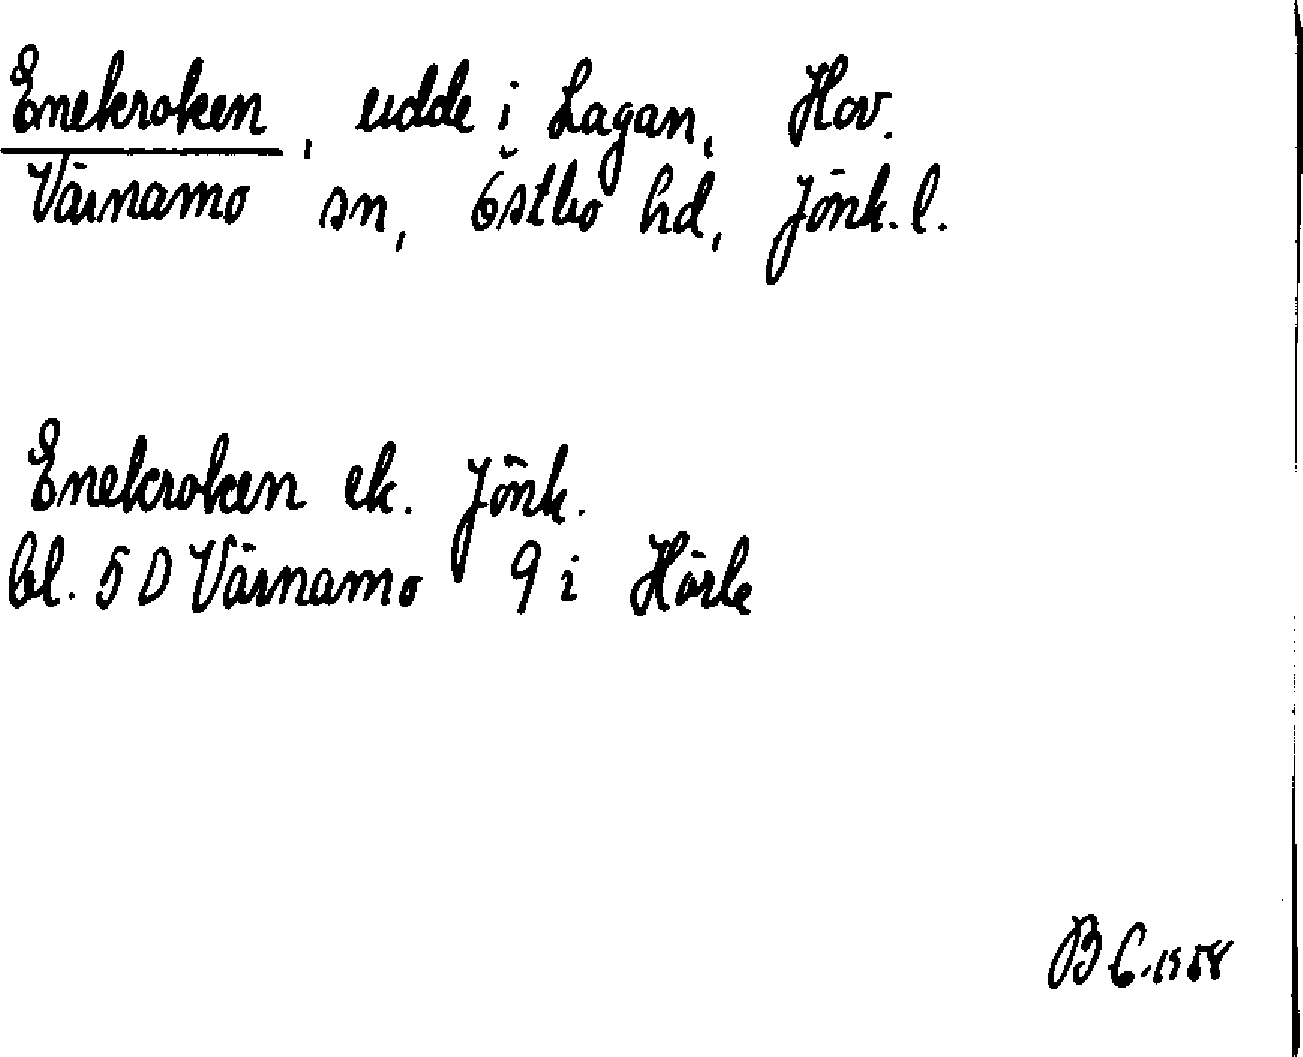 Enekroken, udde i Lagan, Hov.
Värnamo sn, Östbo hd, Jönk. l.
Enekroken ek. Jönk.
bl. 5 D Värnamo 9 i Hörle
B C. 1958